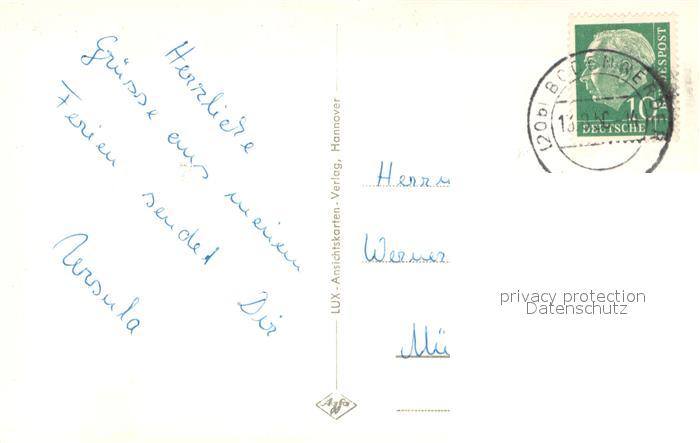 Herzliche
Grüsse aus meinen
Ferien sendet Dir
Ursula
LUX - Ansichtskarten - Verlag, Hannover
Agfa
Herrn
Werner
Mü
10
DEUTSCHE BUNDESPOST
(20b) BODENWERDER
privacy protection
Datenschutz